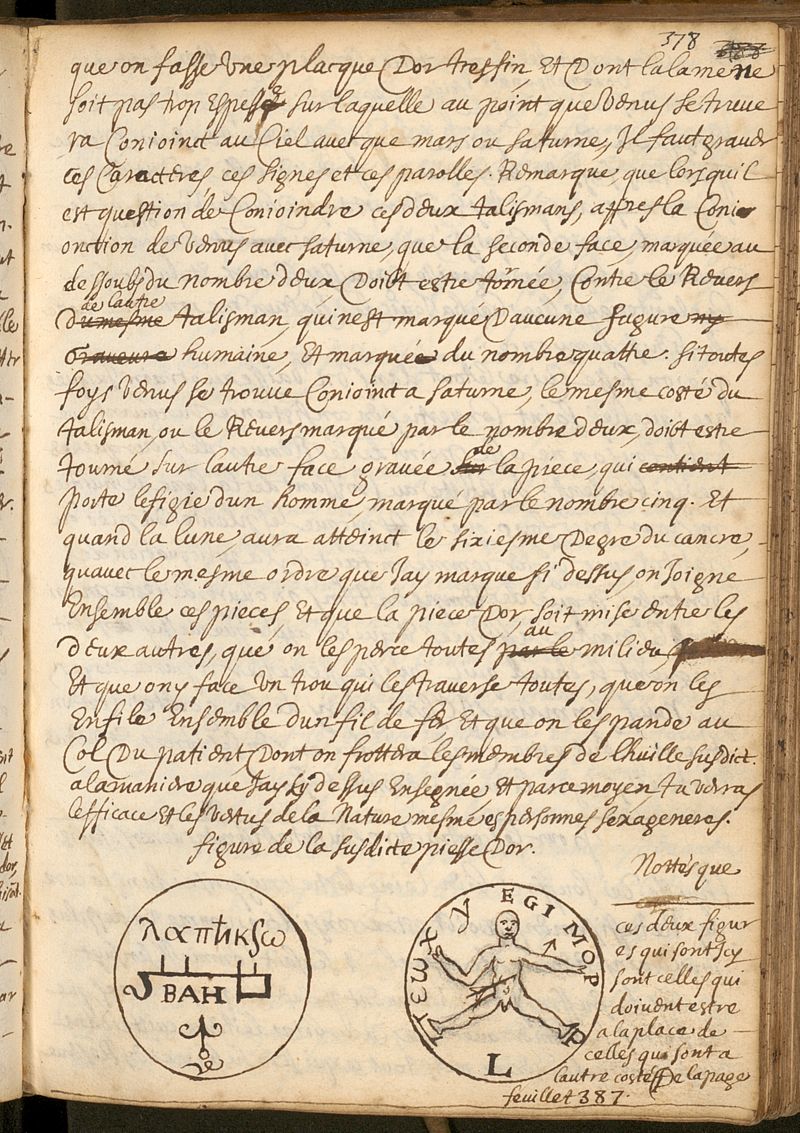 378
que on fasse Une placque Dor tresfin, Et Dont la lame ne
soit pas trop Espesse sur laquelle au point que Venus se truue
ra Conioinct au Ciel auecque mars ou saturne, Il faut grauer
ces Caracteres, ces signes et ces parolles. Remarque, que lorsquil
est question de Conioindre ces deux talismans, appres la Coni
onction de Venus auec saturne, que la seconde face, marquée au
dessoubs du nombre deux, Doibt estre tornée, Contre le Reuers
de lautre
dumesme talisman, qui nest marqué Daucune figure ny
Graueure humaine, Et marquée du nombre quattre. si toutes
foys Venus se trouue Conioinct a saturne, le mesme costé du
talisman, ou le Reuers marqué par le nombre deux, doibt estre
tourné sur lautre face grauée de la piece, qui contient
porte lefigie dun homme, marqué par le nombre cinq. Et
quand la lune, aura atteinct le sixiesme Degre du cancre,
quauec le mesme ordre que Jay marque si dessus, on Joigne
Ensemble ces pieces Et que la piece Dor, soit mise entre les
au
deux autres, que on les perce toutes par le milieu,
Et que ony face Un trou qui les trauerse toutes, que on les
Enfile Ensemble dun fil de fer Et que on les pande au
Col Du patient, Dont on frottera les membres de lhuille susdict.
a la maniere que Jay Cy dessus Enseignée Et par ce moyen, tu verras
lefficace Et les vertus de la Nature mesme es personnes sexageneres.
figure de la susdicte piesse Dor.
Nottes que
ces deux figur
es qui sont Icy
sont celles qui
doiuent estre
a la place de
celles qui sont a
lautre costé De la page
feuillet 387.
λαπ ικςω
ΒΑΗ
V EGIMOR
L
ΙΕΩΧ